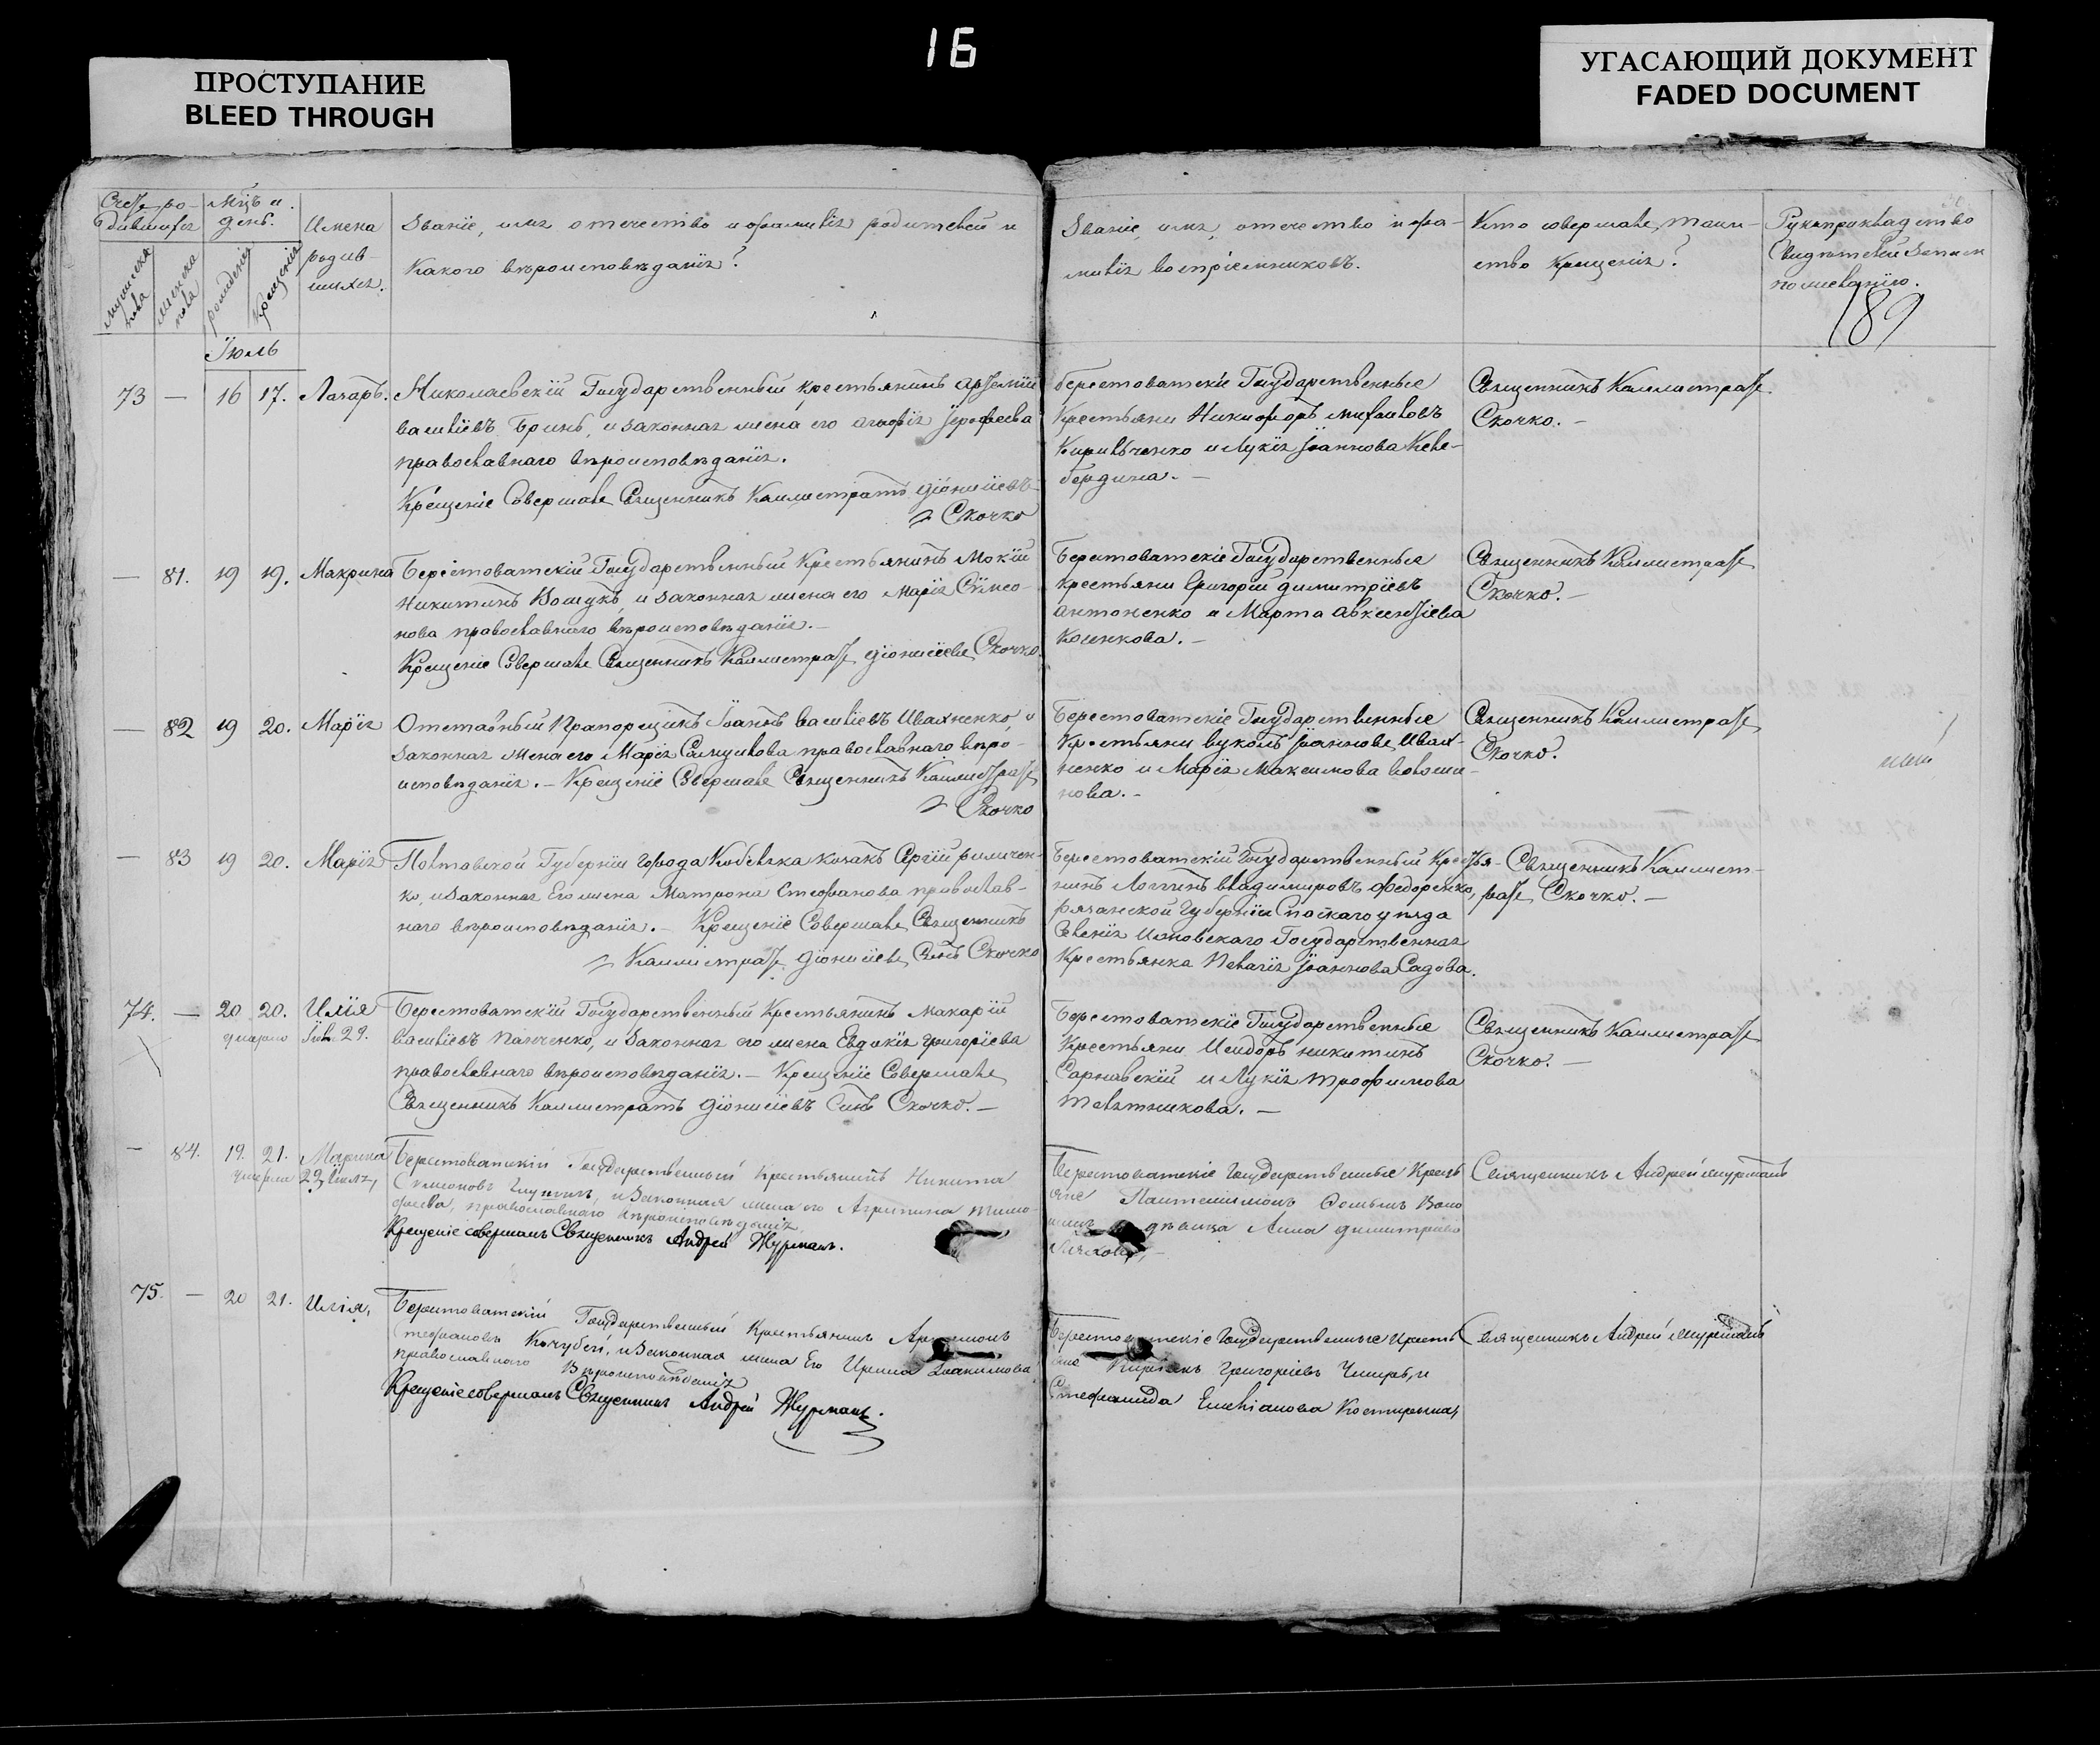 16
ПРОСТУПАНИЕ
BLEED THROUGH
УГАСАЮЩИЙ ДОКУМЕНТ
FADED DOCUMENT
Счетъ ро-
дившихся
Мцъ и
день.
мужеска
пола
женска
пола
рожденія
крещенія
Имена
родив-
шихся.
Званіе, имя, отечество и фамилія родителей и
какого вѣроисповѣданія?
Званіе, имя, отечество и фа-
милія воспріемниковъ.
Кто совершалъ таин-
ство крещенія?
Рукоприкладство
свидѣтелей записи
по желанію.
189
Іюль
73 — 16 17. Лазарь.
Николаевскій Государственный крестьянинъ Арсеній
Василіевъ Бринь, и законная жена его Агафія Іерофеева
православнаго вѣроисповѣданія.
Крещеніе Совершалъ Священникъ Каллистратъ Діонисіевъ
Скочко
Берестоватскіе Государственные
Крестьяни Никифоръ Михайловъ
Кирильченко и Лукія Іоаннова Келе-
бердина. —
Священникъ Каллистратъ
Скочко. —
— 81. 19 19. Макрина
Берестоватскій Государственный Крестьянинъ Мокій
Никитинъ Вошукъ, и законная жена его Марія Сѵмео-
нова православнаго вѣроисповѣданія. —
Крещеніе Совершалъ Священникъ Каллистратъ Діонисіевъ Скочко.
Берестоватскіе Государственные
крестьяни Григорій Димитріевъ
Антоненко и Марта Авксентіева
Коленкова. —
Священникъ Каллистратъ
Скочко. —
— 82 19 20. Марія
Отставный Прапорщикъ Іоаннъ Василіевъ Ивахненко, и
законная жена его Марія Самуилова православнаго вѣро-
исповѣданія. — Крещеніе Совершалъ Священникъ Каллистратъ
Скочко
Берестоватскіе Государственные
Крестьяни Вуколъ Іоанновъ Ивах-
ненко и Марія Максимова Воложи-
нова. —
Священникъ Каллистратъ
Скочко.
— 83 19 20. Марія
Полтавской Губерніи города Кобеляка козакъ Сергій Римичен-
ко, и законная Его жена Матрона Стефанова православ-
наго вѣроисповѣданія. — Крещеніе Совершалъ Священникъ
Каллистратъ Діонисіевъ Сынъ Скочко
Берестоватскій Государственный Крестья-
нинъ Логгинъ Владимировъ Федоренко,
рязанской Губерніи Спаскаго уѣзда
Селенія Ижевскаго Государственная
Крестьянка Пелагія Іоаннова Садова.
Священникъ Каллист-
ратъ Скочко. —
74. — 20 20. Илія
умерло Іюл. 29.
Берестоватскій Государственный Крестьянинъ Макарій
Василіевъ Панченко, и Законная его жена Евдокія Григоріева
православнаго вѣроисповѣданія. — Крещеніе Совершалъ
Священникъ Каллистратъ Діонисіевъ Сынъ Скочко. —
Берестоватскіе Государственные
Крестьяни Исидоръ Никитинъ
Сарнавскій и Лукія Трофимова
Телятникова. —
Священникъ Каллистратъ
Скочко. —
— 84. 19. 21. Марина
умерла 29 Іюля,
Берестоватскій Государственный Крестьянинъ Никита
Симеоновъ, и Законная жена его Агрипина Тимо-
феева, православнаго вѣроисповѣданія
Крещеніе совершалъ Священникъ Андрей Журманъ.
Берестоватскіе Государственные Кресть
яне Пантелимонъ Воло
дѣвица Анна Димитріева
Священникъ Андрей Журманъ
75. — 20 21. Илія,
Берестоватскій Государственный Крестьянинъ Артемонъ
Стефановъ Кочубей, и Законная жена Его Ирина Іоакимова
православнаго Вѣроисповѣданія
Крещеніе совершалъ Священникъ Андрей Журманъ.
Берестоватскіе Государственные Кресть
яне Григоріевъ Чмиръ, и
Стефанида Емеліанова
Священникъ Андрей Журманъ